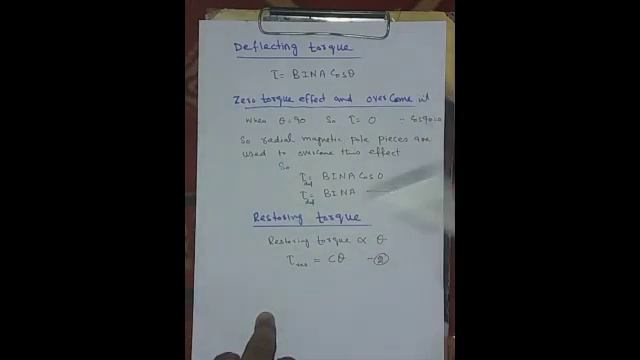 Deflecting torque
τ = BINA Cosθ
Zero torque effect and overcome it
When θ=90 So τ = 0 ∵ cos90=0
So radial magnetic pole pieces are
used to overcome this effect
So
τdef = BINA Cos 0
τdef = BINA
Restoring torque
Restoring torque ∝ θ
τres = Cθ -②